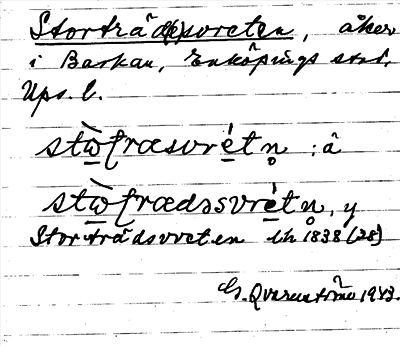 Storträd(e)svreten, åker
i Backan, Enköpings stad,
Ups. l.
stὼʃræsvrétn̥ : â
stὼʃrædəsvrétn̥, y
Storträdsvreten lh 1838 (28)
G. Qvarnström 1943.